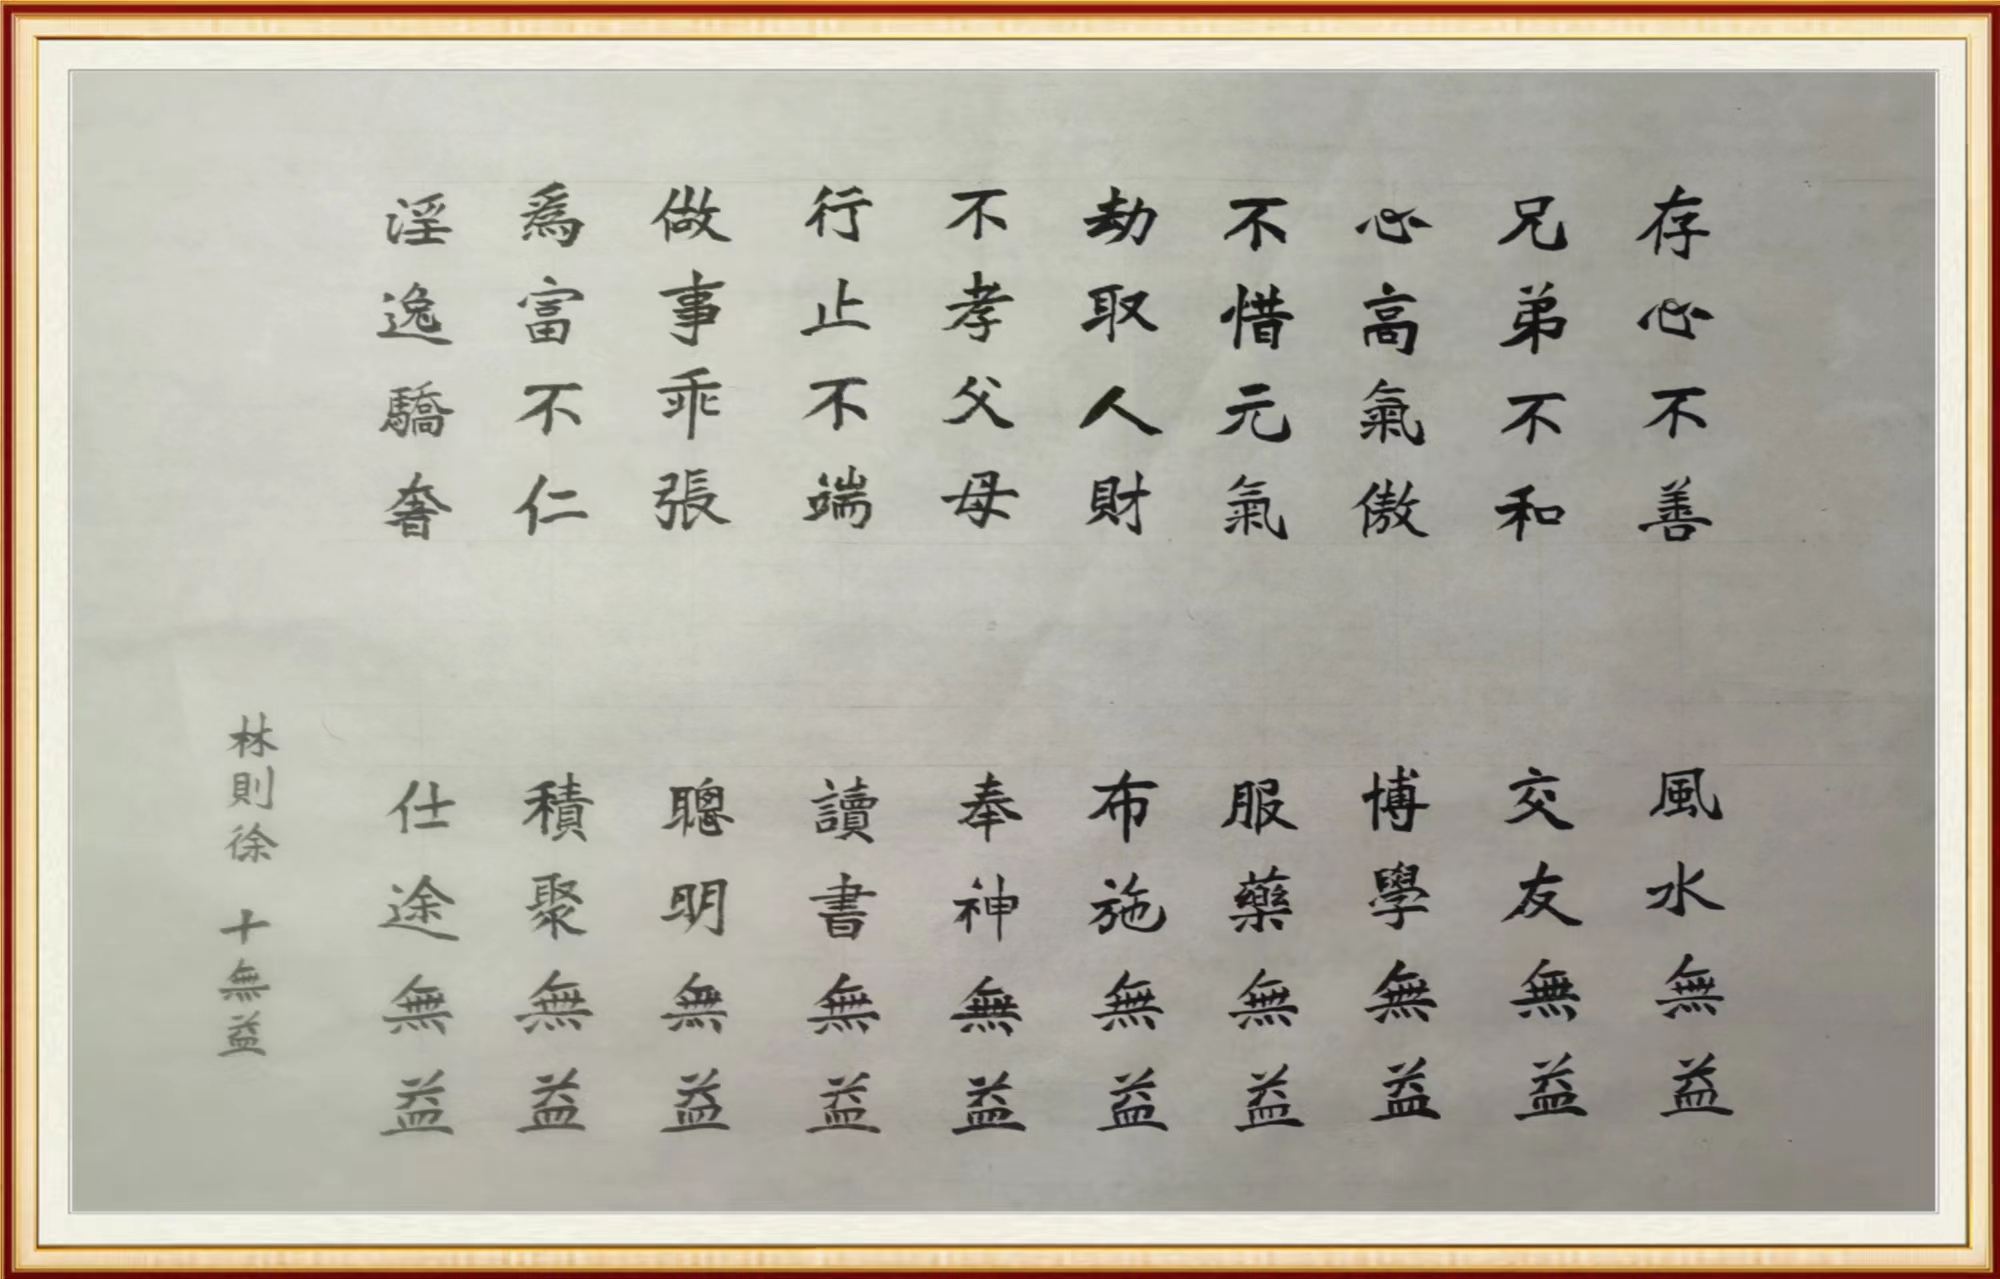 存心不善 風水無益
兄弟不和 交友無益
心高氣傲 博學無益
不惜元氣 服藥無益
劫取人財 布施無益
不孝父母 奉神無益
行止不端 讀書無益
做事乖張 聰明無益
爲富不仁 積聚無益
淫逸驕奢 仕途無益
林則徐 十無益